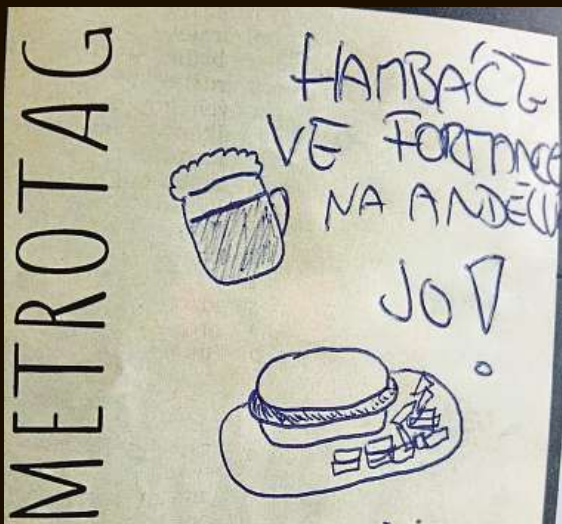 METROTAG
HAMBÁČE
VE FORTANCE
NA ANDĚLU
JO!